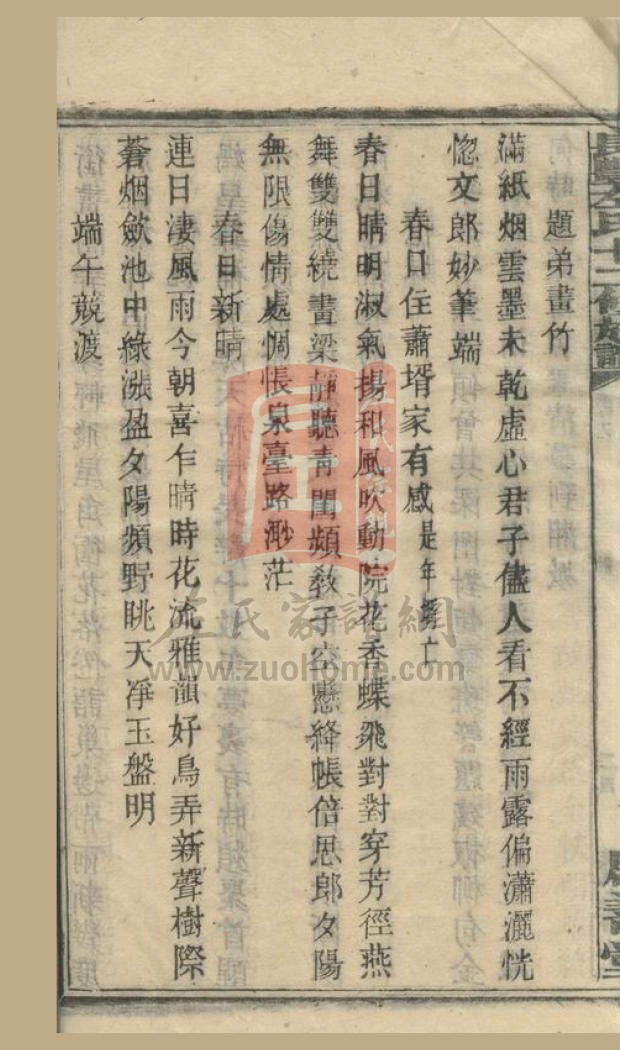 題弟畫竹
滿紙烟雲墨未乾虛心君子儘人看不經雨露偏瀟灑恍
惚文郎妙筆端
春日住蕭壻家有感 是年壻亡
春日晴明淑氣揚和風吹動院花香蝶飛對對穿芳徑燕
舞雙雙繞畫梁靜聽青閨頻敎子空懸絳帳倍思郎夕陽
無限傷情處惆悵泉臺路渺茫
春日新晴
連日淒風雨今朝喜乍晴時花流雅韻好鳥弄新聲樹際
蒼烟歛池中綠漲盈夕陽頻野眺天凈玉盤明
端午競渡
左氏家譜網
www.zuohome.com